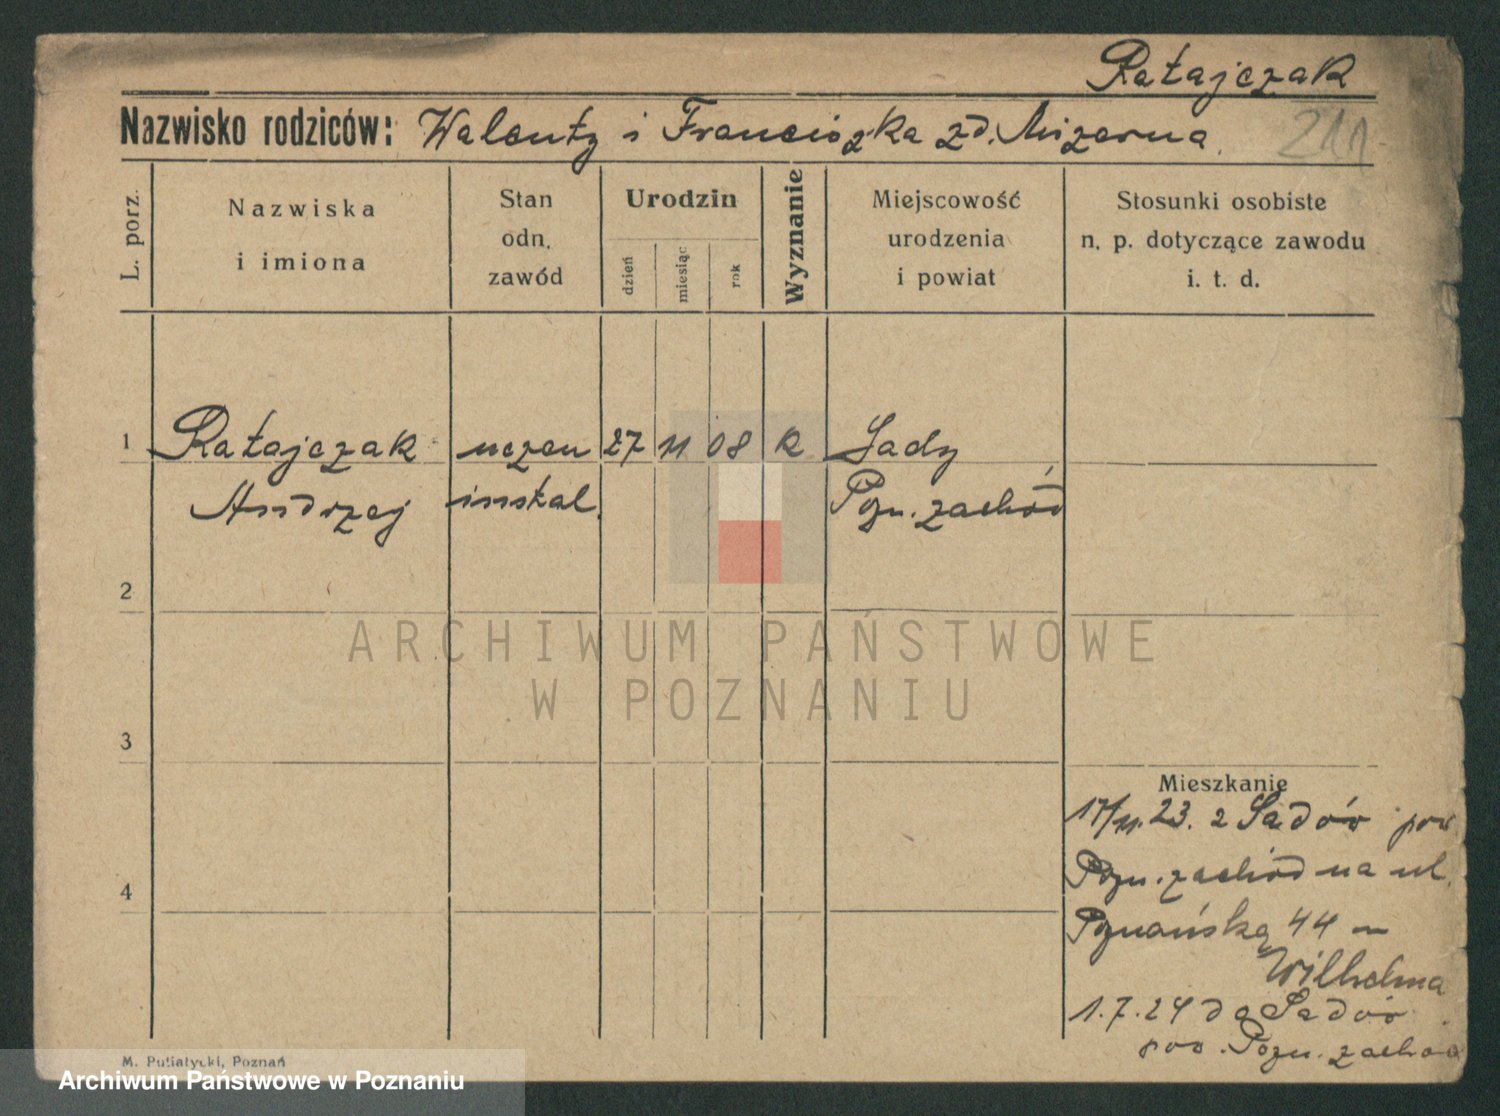 Ratajczak
Nazwisko rodziców: Walenty i Franciszka zd. Mizerna
211
L. porz.
Nazwiska
i imiona
Stan
odn.
zawód
Urodzin
dzień
miesiąc
rok
Wyznanie
Miejscowość
urodzenia
i powiat
Stosunki osobiste
n. p. dotyczące zawodu
i. t. d.
1 Ratajczak uczen 27 11 08 k Sady
Andrzej instal. Pozn. zachód
2
3
4
Mieszkanie
17/11.23. z Sadów pow
Pozn. zachód na ul.
Poznańską 44 u
Wilhelma
1.7.24 do Sadów
pow. Pozn. zachód
M. Putiatycki, Poznań
ARCHIWUM PAŃSTWOWE
W POZNANIU
Archiwum Państwowe w Poznaniu